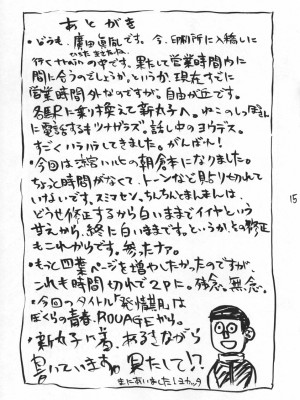 あとがき
・どうも、廣田眞胤です。今、印刷所に入稿しに
行くtrainの中です。果たして営業時間内に
間に合うのでしょうか。というか、現在すでに
営業時間外なのですが。自由が丘です。
名駅に乗り換えて新丸子へ。ねこのしっぽさん
に電話するもツナガラズ。話し中のヨウデス。
すごくハラハラしてきました。がんばれ!
・今回は の朝倉本になりました。
ちょっと時間がなくて、トーンなど貼りきれて
いけないです。スミマセン。ちんちんとまんまんは、
どうせ修正するから白いままでイイヤという
甘えから、終に白いままです。というか、その修正
もこれからです。参ったナァ。
・もっと四葉ページを増やしたかったのですが、
これも時間切れで2Pに。残念。無念。
・今回のタイトル「発情期」は
ぼくらの青春、ROUAGEから。
・新丸子に着、あるきながら
書いています。果たして!?
まにあいました!ヨカッタ
15